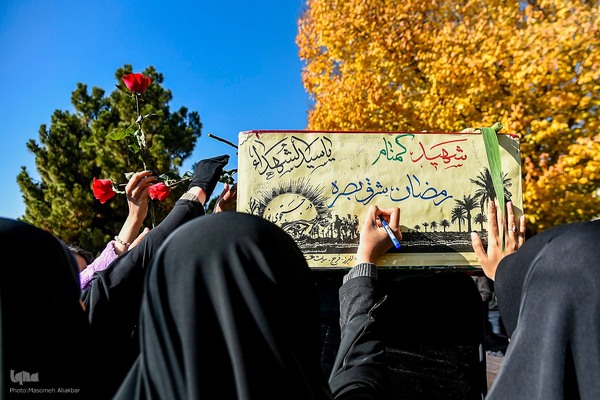 یا سیدالشهداء
شهید گمنام
رمضان - شرق بصره
iqna
Photo:Masomeh Aliakbar